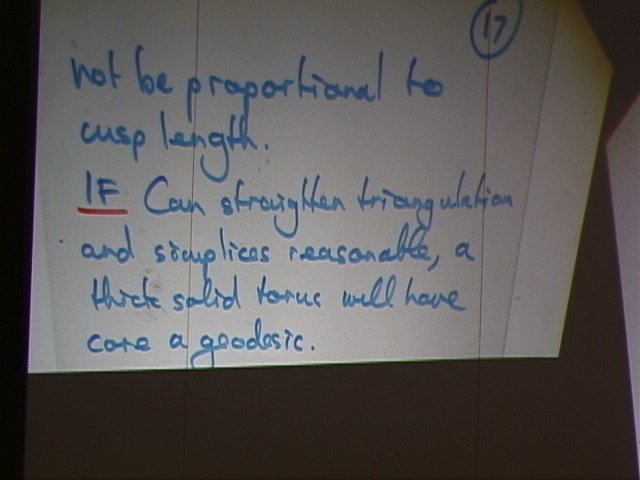 17
not be proportional to
cusp length.
IF Can straighten triangulation
and simplices reasonable, a
thick solid torus will have
core a geodesic.